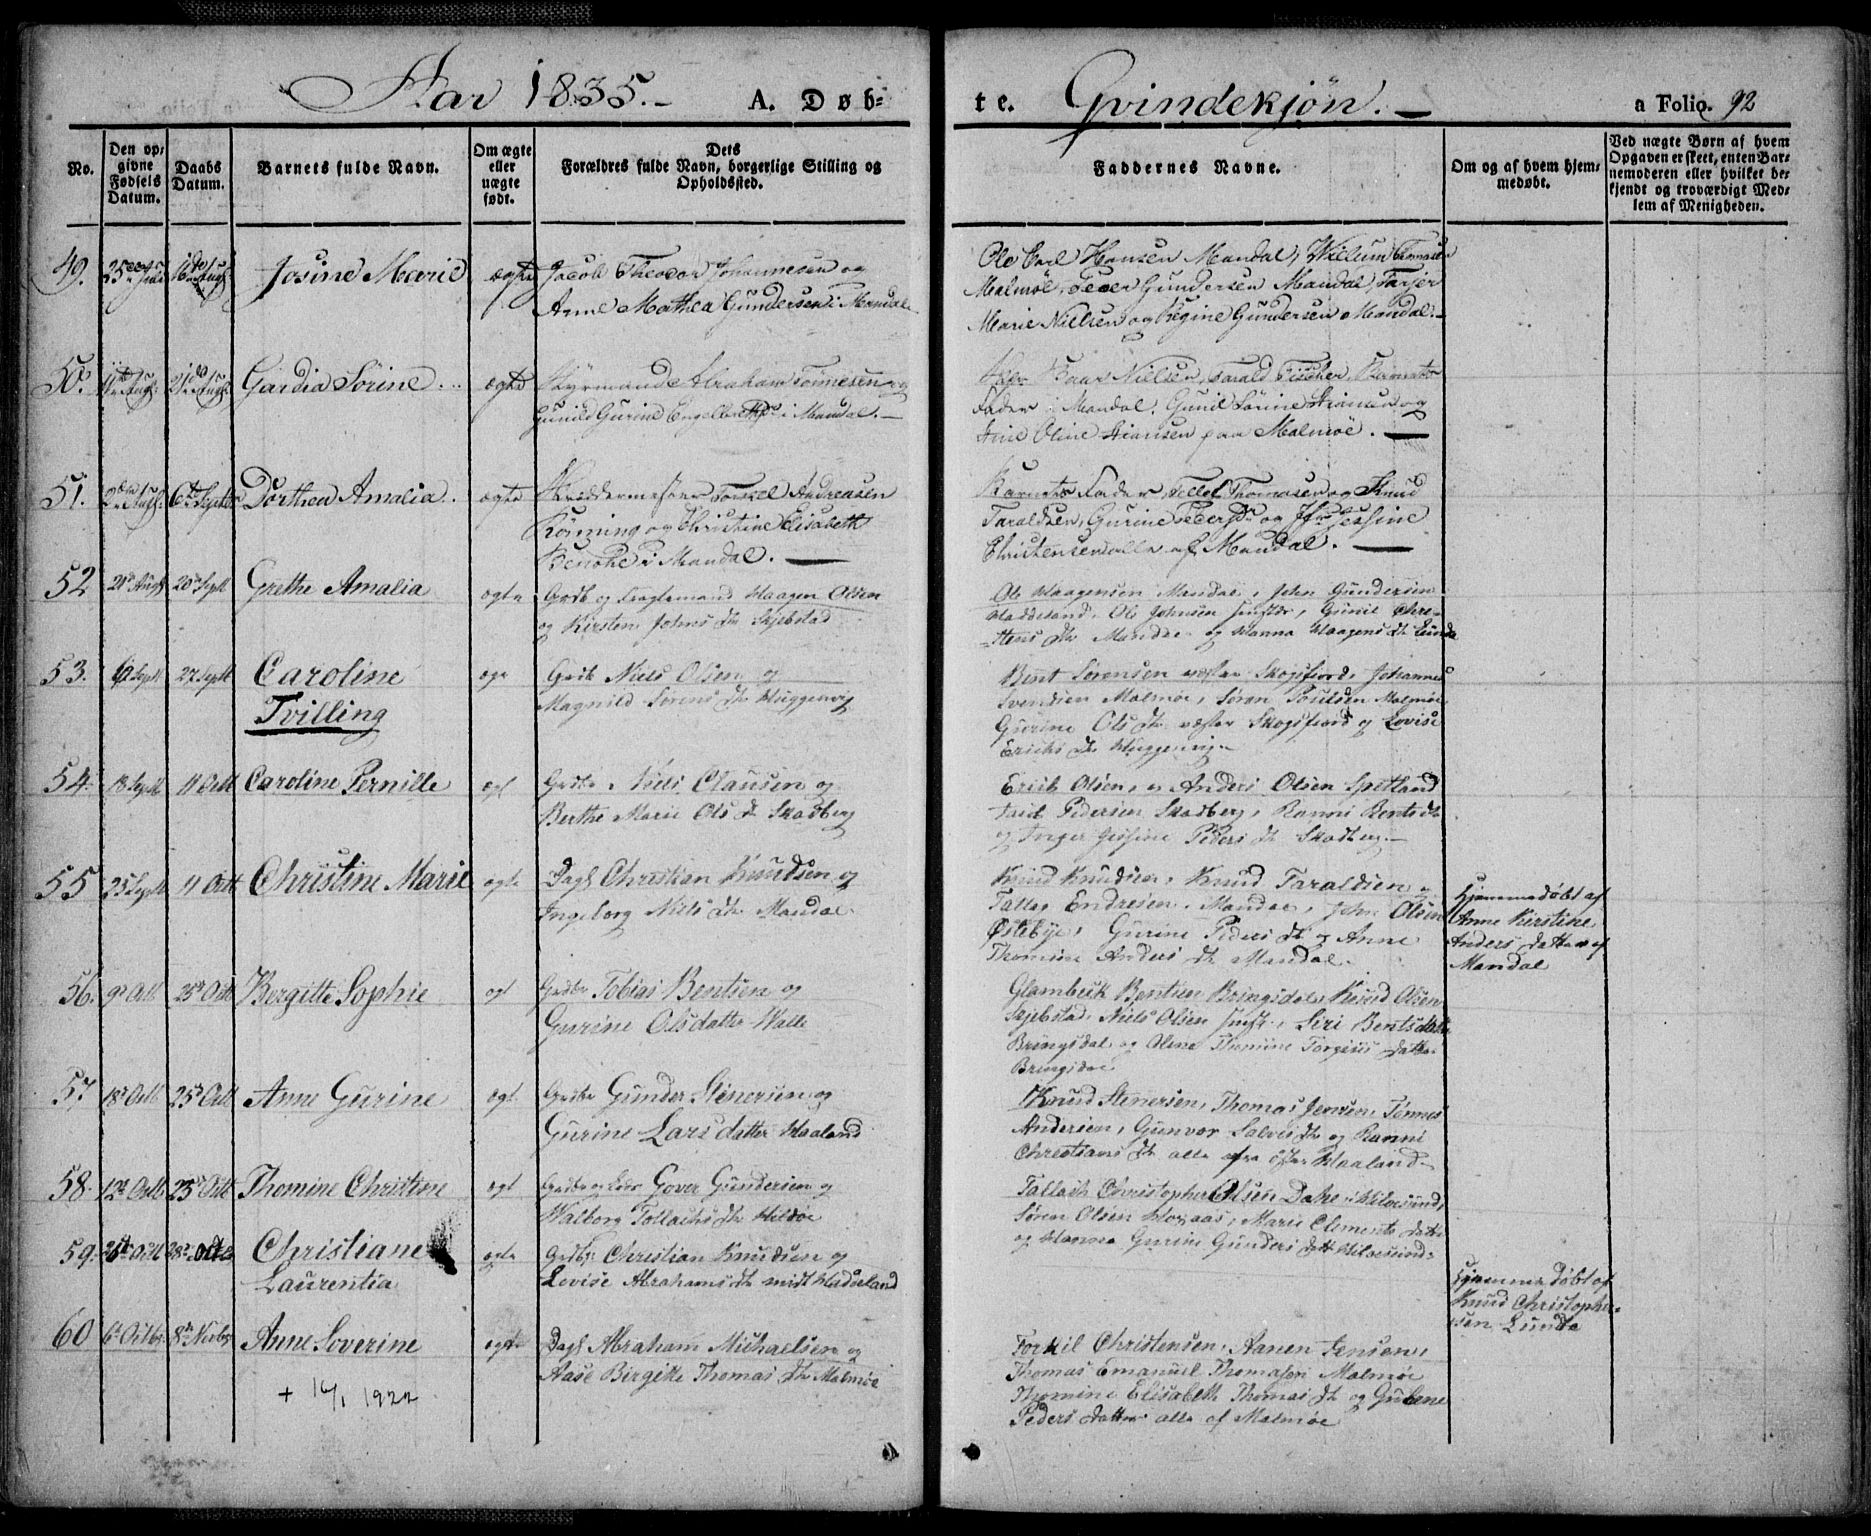 Aar 1835.
A. Døb=
te.
Qvindekjøn.
a Folio. 92
No.
Den op=
givne
Fødsels
Datum.
Daabs
Datum.
Barnets fulde Navn.
Om ægte
eller
uægte
født.
Dets
Forældres fulde Navn, borgerlige Stilling og
Opholdssted.
Faddernes Navne.
Om og af hvem hjem=
medøbt.
Ved uægte Børn af hvem
Opgaven er skeet, enten Bar=
nemoderen eller hvilket be=
kjendt og troværdigt Med=
lem af Menigheden.
49.
Josine Marie
ægte
Jacob Theodor Johannesen og
Anne Mathea Gundersen i Mandal
Ole Carl Hansen Mandal, Willum
Malmöe, Peder Gundersen Mandal,
Marie Nielsen og Regine Gundersen Mandal.
50.
Gardia Sörine
ægte
Styrmand Abraham Tönnesen og
Gunild Gurine i Mandal.
Nielsen, Tarald Fischer,
Fader i Mandal, Gunil Sörine og
Oline paa Malmöe.
51.
Dorthea Amalia
ægte
Skreddermester Torkel Andreasen
og Christine Elisabeth
i Mandal.
Barnets Fader, Tellef Thomasen og Knud
Taraldsen, Gurine og Jfr Jessine
Christensen alle af Mandal.
52
21d Augst 20d Septb
Grethe Amalia
ægte
Grdb og Fraglemand Haagen Olsen
og Kirsten Johns dtr Skjebstad
Ole Haagensen Mandal, John Gundersen
Haddeland, Ole Johnsen, Gunil Chri-
stens dtr Mandal og Hanna Haagens dtr Lunde
53.
6 Septb 27 Septb
Caroline
Tvilling
ægt
Grdb Niels Olsen og
Magnild Sörens dtr Huggenvig
Bent Sörensen vester Skogsfiord, Johannes
Svendsen Malmöe, Sören Poulsen Malmöe
Gurine Ols dtr vester Skogsfiord og Lovise
Erichs dtr Huggenvig
54.
18 Septb 11 Octb
Caroline Pernille
ægt
Grdbr. Niels Clausen og
Berthe Marie Ols dtr Skadberg
Erich Olsen, og Anders Olsen Spetland
Pedersen Skadberg, Ranni Bents dtr
og Inger Jessine Peders dtr Skadberg
55
25 Septb 11 Octb
Christine Marie
ægte
Dagl Christian Knudsen og
Ingeborg Niels dtr Mandal
Knud Knudsen, Knud Taraldsen og
Tallag Endresen, Mandal, John Olsen
Östebye, Gurine Peders dtr og Anne
Thomine Anders dtr Mandal.
Hjemmedöbt af
Anne Kirstine
Anders datter af
Mandal
56.
9d Octb 25d Octb
Bergitte Sophie
ægt
Grdbr Tobias Bentsen og
Gurine Olsdatter Valle
Glambek Bentsen Bringsdal, Knud Olsen
Skjebstad, Niels Olsen, Siri Bentsdatter
Bringsdal og Oline Thomine Torgeses datter
Bringsdal
57
18d Octb 25d Octb
Anne Gurine
ægt.
Grdbr Gunder Stenersen og
Gurine Larsdatter Haaland
Knud Stenersen, Thomas Jensen, Tönnes
Andersen, Gunvor Salves dtr og Ranni
Christians dtr alle fra öster Haaland
58
12d Octb 25d Octb
Thomine Christine
ægt
Grdbr og Lods Gover Gundersen og
Walborg Tollachs dtr Hildöe
Tallach Christopher Olsen Dahe i Hilöesund,
Sören Olsen, Marie Clements datter
og Hanna Gurine Gunders datt Hilöesund
59.
Christiane
Laurentia
ægte
Grdbr Christian Knudsen og
Lovise Abrahams dtr midt Hadseland
Hjemmedöbt af
Knud Christopher-
sen Lunde
60
6d Octbr 8d Novbr
Anne Soverine
ægte
Dagl Abraham Michaelsen og
Aase Birgitte Thomas dtr Malmöe
+ 16/1 1922
Torkil Christensen, Aanen Jensen,
Thomas Emanuel Thomasen Malmöe
Thomine Elisabeth Thomas dtr og Gurine
Peders datter alle af Malmöe